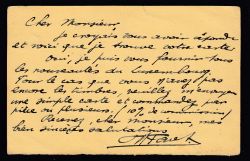 Cher Monsieur,
Je croyais vous avoir répondu
et voici que je trouve votre carte
oui, je puis vous fournir tous
les nouveautés du Luxembourg.
Pour le cas que vous n'ayez pas
encore les timbres, veuillez m'envoyer
une simple carte et commandez par
pièce ou plusieurs
Recevez, cher monsieur mes
bien sincères salutations